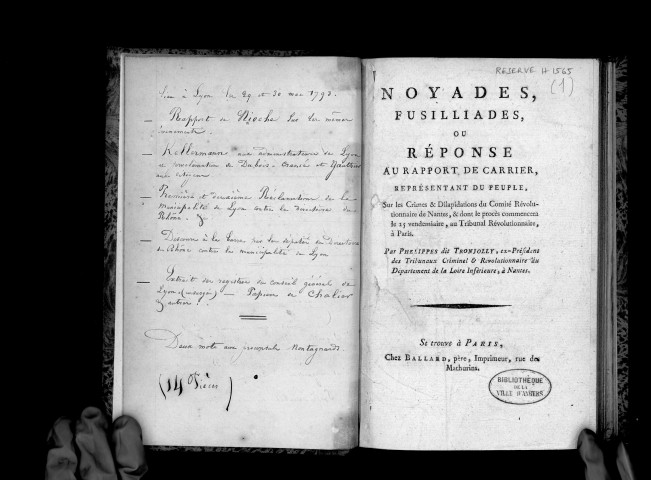 lieu à Lyon les 29 et 30 mai 1793.
— Rapport de Nioche sur les mêmes
événements.
— Kellermann aux administrateurs de Lyon
et proclamation de Dubois-Crancé et Gauthier
aux citoyens
— Première et deuxième Réclamations de la
municipalité de Lyon contre le directoire du
Rhône.
— Discours à la barre par les députés du Directoire
de Rhône contre la municipalité de Lyon
— Extrait des registres du conseil général de
Lyon — Papiers de Chalier
& autres.
Deux mots aux Montagnards.
(14 Pièces)
RESERVE H 1565
(1)
NOYADES,
FUSILLIADES,
OU
RÉPONSE
AU RAPPORT DE CARRIER,
REPRÉSENTANT DU PEUPLE,
Sur les Crimes & Dilapidations du Comité Révolu-
tionnaire de Nantes, & dont le procès commencera
le 25 vendemiaire, au Tribunal Révolutionnaire,
à Paris.
Par PHELIPPES dit TRONJOLLY, ex-Président
des Tribunaux Criminel & Révolutionnaire du
Département de la Loire Inférieure, à Nantes.
Se trouve à PARIS,
Chez BALLARD, père, Imprimeur, rue des
Mathurins.
BIBLIOTHÈQUE
DE LA
VILLE D'AMIENS